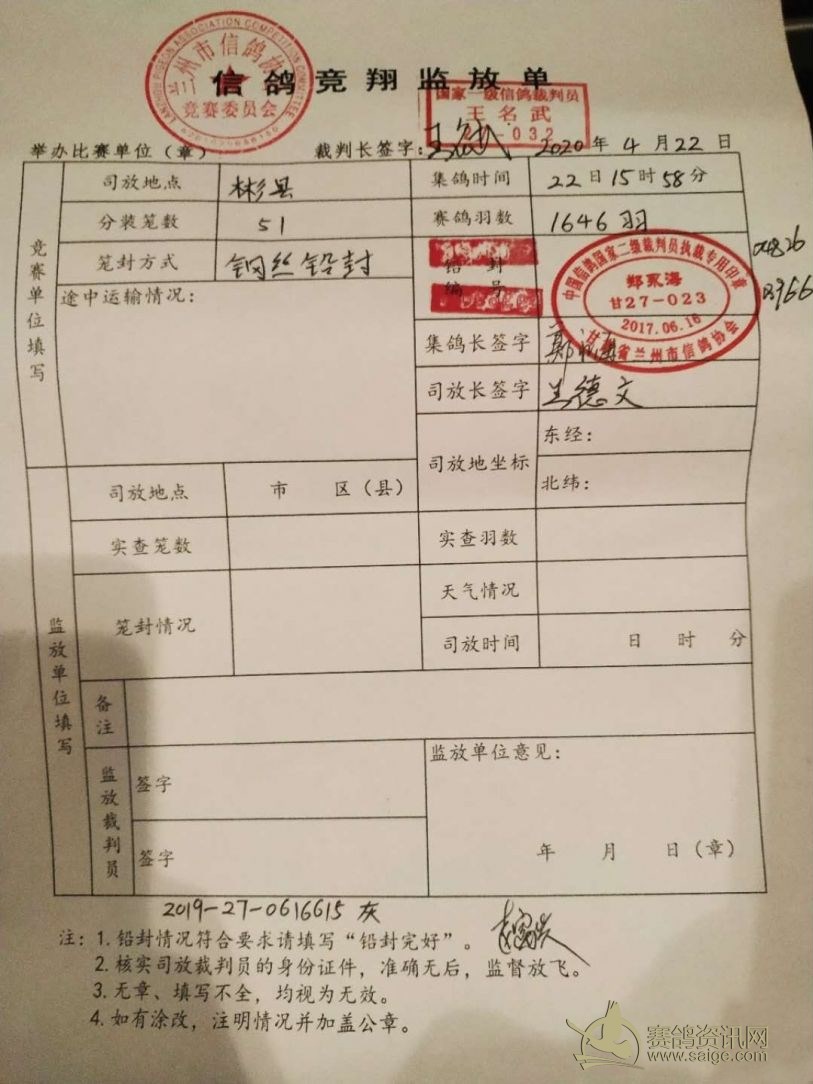 信鸽竞翔监放单
兰州市信鸽协会
竞赛委员会
LANZHOU PIGEON ASSOCIATION COMPETITION COMMITTEE
国家一级信鸽裁判员
王名武
032
举办比赛单位（章） 裁判长签字：王名武 2020年4月22日
竞赛单位填写
司放地点 彬县 集鸽时间 22日15时58分
分装笼数 51 赛鸽羽数 1646羽
笼封方式 钢丝铅封 铅封编号
中国信鸽国家二级裁判员执裁专用印章
郑永海
甘27-023
2017.06.16
甘肃省兰州市信鸽协会
途中运输情况：
集鸽长签字
司放长签字 王德文
司放地坐标 东经：
北纬：
监放单位填写
司放地点 市 区（县）
实查笼数 实查羽数
笼封情况 天气情况
司放时间 日 时 分
备注
监放裁判员 签字
签字
监放单位意见：
年 月 日（章）
2019-27-0616615 灰
注：1. 铅封情况符合要求请填写“铅封完好”。
2. 核实司放裁判员的身份证件，准确无后，监督放飞。
3. 无章、填写不全，均视为无效。
4. 如有涂改，注明情况并加盖公章。
赛鸽资讯网
www.saige.com